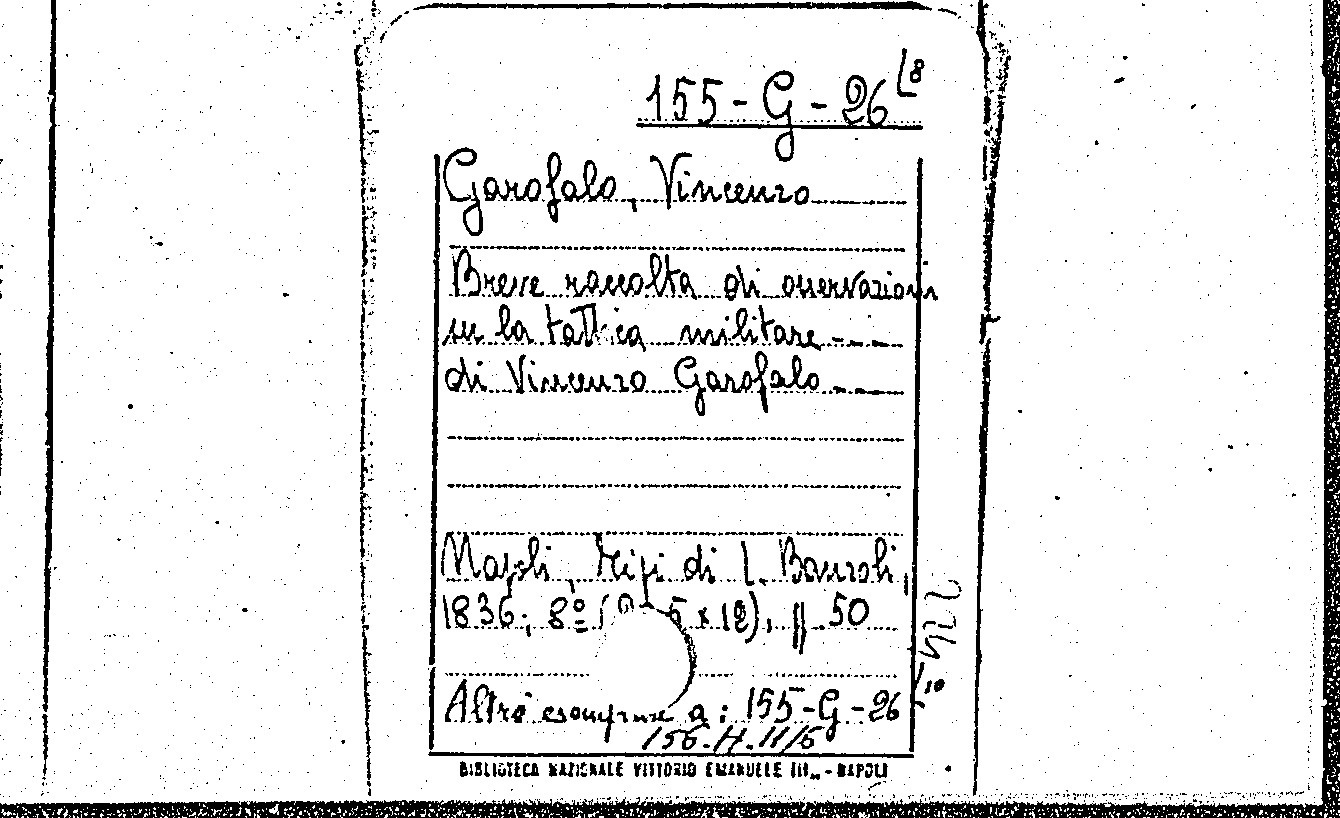 155-G-26 [8
Garofalo, Vincenzo
Breve raccolta di osservazioni
su la tattica militare - - -
di Vincenzo Garofalo - - -
Napoli, Tipi di L. Banzoli,
1836; 8º ( 5 x 12), pp. 50
Altro esemplare a: 155-G-26 [10
156.H.11/5
BIBLIOTECA NAZIONALE VITTORIO EMANUELE III,, - NAPOLI